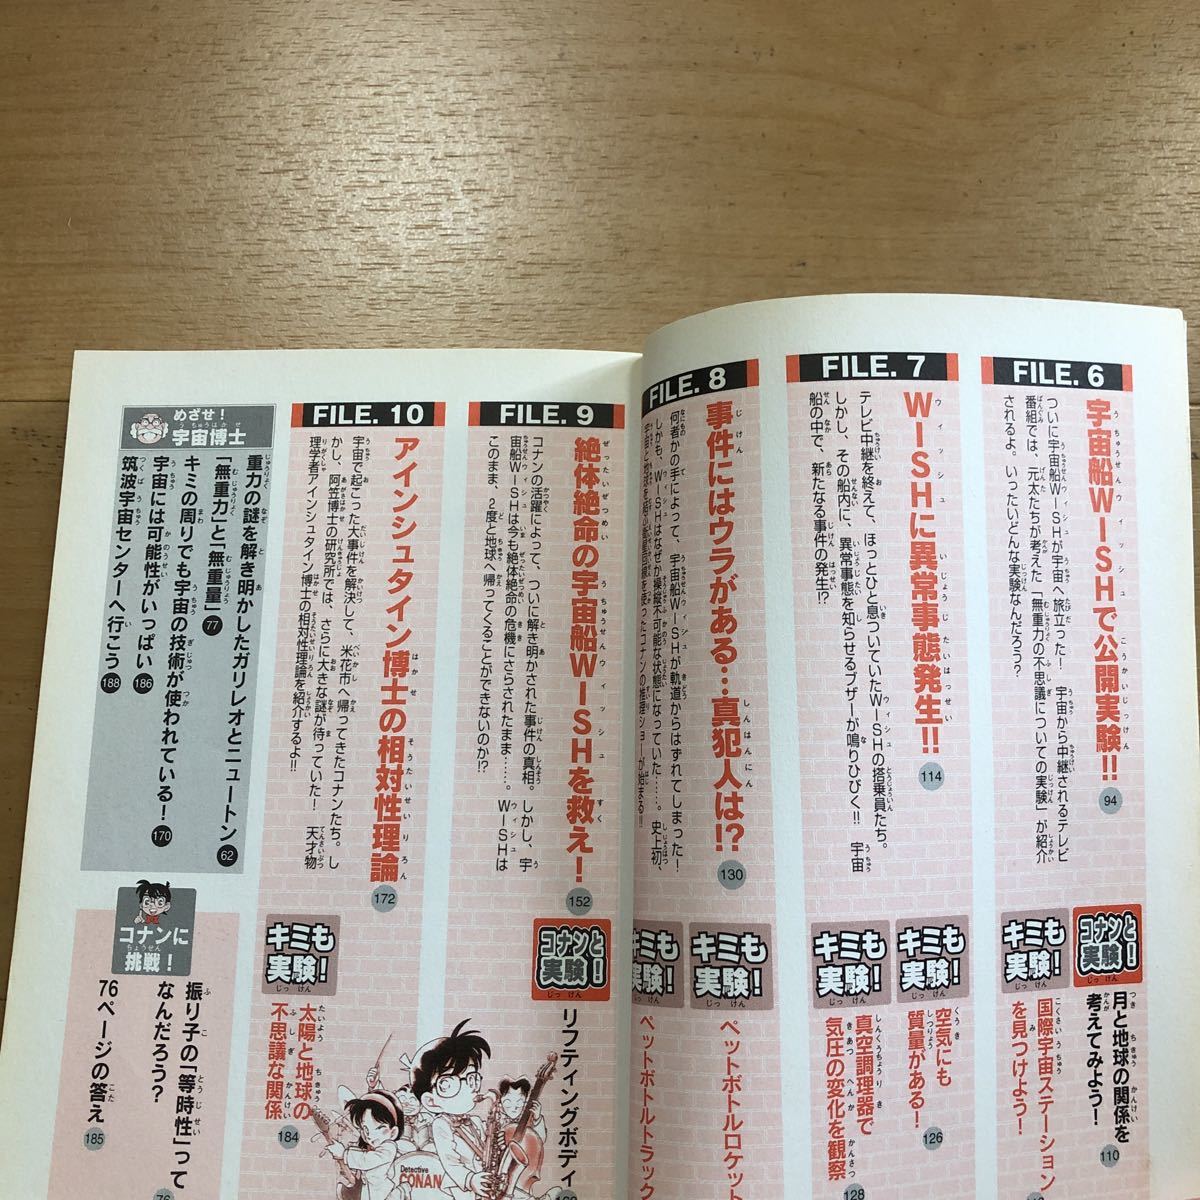 FILE. 6
宇宙船WISHで公開実験!! 94
ついに宇宙船WISHが宇宙へ旅立った! 宇宙から中継されるテレビ
番組では、元太たちが考えた「無重力の不思議についての実験」が紹介
されるよ。いったいどんな実験なんだろう?
コナンと実験!
月と地球の関係を
考えてみよう! 110
キミも実験!
国際宇宙ステーション
を見つけよう!
FILE. 7
WISHに異常事態発生!! 114
テレビ中継を終えて、ほっとひと息ついていたWISHの搭乗員たち。
しかし、その船内に、異常事態を知らせるブザーが鳴りひびく!! 宇宙
船の中で、新たなる事件の発生!?
キミも実験!
空気にも
質量がある! 126
キミも実験!
真空調理器で
気圧の変化を観察 128
FILE. 8
事件にはウラがある…真犯人は!? 130
何者かの手によって、宇宙船WISHが軌道からはずれてしまった!
しかも、WISHはなぜか操縦不可能な状態になっていた……。史上初、
宇宙と地球を結ぶ衛星回線を使ったコナンの推理ショーが始まる!!
キミも実験!
ペットボトルロケット
キミも実験!
ペットボトルトラック
FILE. 9
絶体絶命の宇宙船WISHを救え! 152
コナンの活躍によって、ついに解き明かされた事件の真相。しかし、宇
宙船WISHは今も絶体絶命の危機にさらされたまま……。WISHは
このまま、2度と地球へ帰ってくることができないのか!?
コナンと実験!
リフティングボディ
FILE. 10
アインシュタイン博士の相対性理論 172
宇宙で起こった大事件を解決して、米花市へ帰ってきたコナンたち。し
かし、阿笠博士の研究所では、さらに大きな謎が待っていた! 天才物
理学者アインシュタイン博士の相対性理論を紹介するよ!!
キミも実験!
太陽と地球の
不思議な関係 184
めざせ!
宇宙博士
重力の謎を解き明かしたガリレオとニュートン 62
「無重力」と「無重量」 77
キミの周りでも宇宙の技術が使われている! 170
宇宙には可能性がいっぱい 186
筑波宇宙センターへ行こう 188
コナンに
挑戦!
振り子の「等時性」って
なんだろう? 76
76ページの答え 185
Detective
CONAN